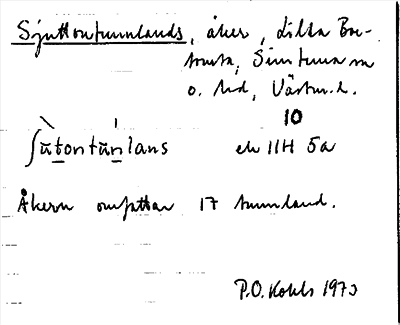 Sjuttontunnlands, åker, Lilla Bre-
sta, Simtuna sn
o. hd, Västm.l.
10
ʃùtontúnlans ek 11H 5a
Åkern omfattar 17 tunnland.
P.O. Kohls 1973